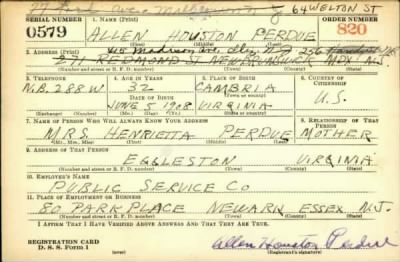 64 WELTON ST
SERIAL NUMBER 1. NAME (Print) ORDER NUMBER
0579 ALLEN HOUSTON PERDUE 820
(First) (Middle) (Last)
2. ADDRESS (Print)
271 REDMOND ST NEW BRUNSWICK MDX N.J.
(Number and street or R. F. D. number) (Town) (County) (State)
3. TELEPHONE 4. AGE IN YEARS 5. PLACE OF BIRTH 6. COUNTRY OF CITIZENSHIP
N.B. 288W 32 CAMBRIA U.S.
DATE OF BIRTH (Town or county)
JUNE 5 1908 VIRGINIA
(Exchange) (Number) (Mo.) (Day) (Yr.) (State or country)
7. NAME OF PERSON WHO WILL ALWAYS KNOW YOUR ADDRESS 8. RELATIONSHIP OF THAT PERSON
MRS. HENRIETTA PERDUE MOTHER
(Mr., Mrs., Miss) (First) (Middle) (Last)
9. ADDRESS OF THAT PERSON
EGGLESTON VIRGINIA
(Number and street or R. F. D. number) (Town) (County) (State)
10. EMPLOYER'S NAME
PUBLIC SERVICE CO
11. PLACE OF EMPLOYMENT OR BUSINESS
80 PARK PLACE NEWARK ESSEX N.J.
(Number and street or R. F. D. number) (Town) (County) (State)
I AFFIRM THAT I HAVE VERIFIED ABOVE ANSWERS AND THAT THEY ARE TRUE.
REGISTRATION CARD
D. S. S. Form 1 (over) Allen Houston Perdue
(Registrant's signature)